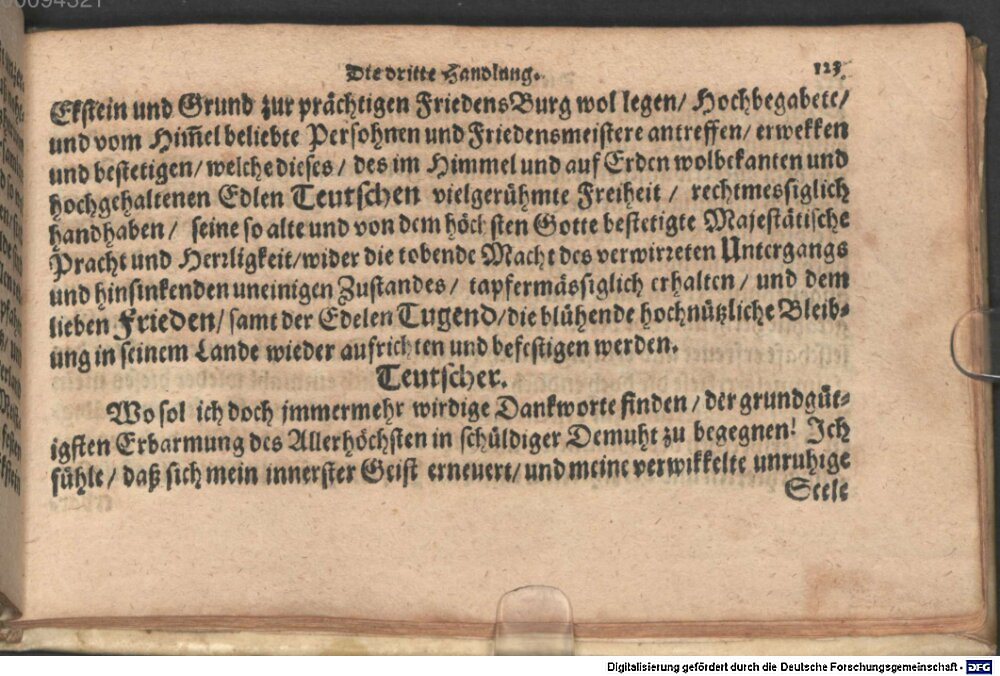 Die dritte Handlung. 123
Ekstein und Grund zur prächtigen FriedensBurg wol legen/ Hochbegabete/
und vom Him̃el beliebte Persohnen und Friedensmeistere antreffen/ erwekken
und bestetigen/ welche dieses/ des im Himmel und auf Erden wolbekanten und
hochgehaltenen Edlen Teutschen vielgerühmte Freiheit / rechtmessiglich
handhaben/ seine so alte und von dem höchsten Gotte bestetigte Majestätische
Pracht und Herrligkeit/ wider die tobende Macht des verwirreten Untergangs
und hinsinkenden uneinigen Zustandes/ tapfermässiglich erhalten/ und dem
lieben Frieden/ samt der Edelen Tugend/ die blühende hochnützliche Bleib-
ung in seinem Lande wieder aufrichten und befestigen werden.
Teutscher.
Wo sol ich doch jmmermehr wirdige Dankworte finden/ der grundgüt-
igsten Erbarmung des Allerhöchsten in schüldiger Demuht zu begegnen! Ich
fühle/ daß sich mein innerster Geist erneuert/ und meine verwikkelte unruhige
Seele
Digitalisierung gefördert durch die Deutsche Forschungsgemeinschaft - DFG